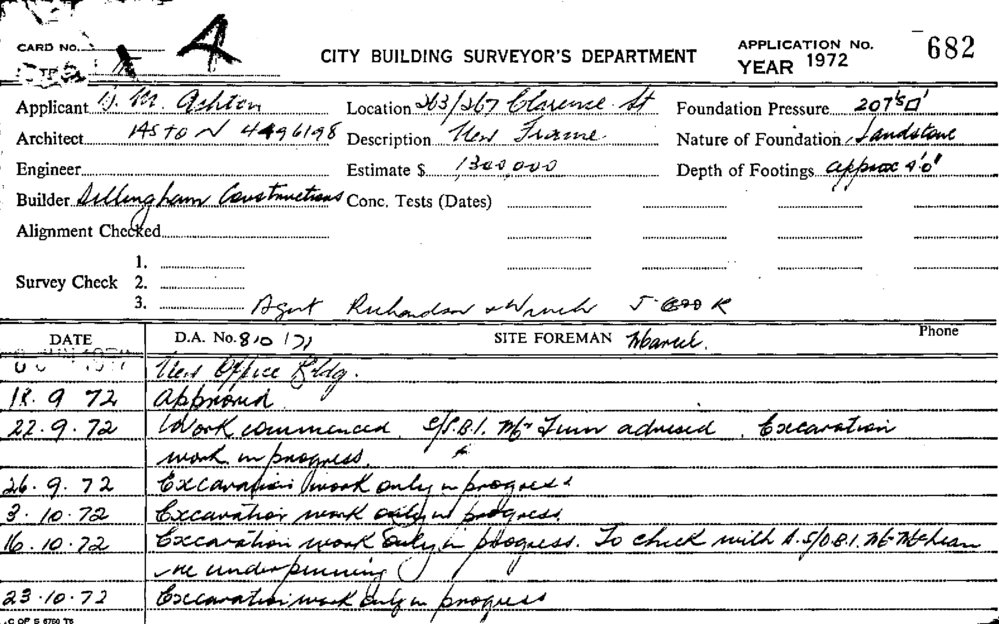 CARD NO.
A
CITY BUILDING SURVEYOR'S DEPARTMENT
APPLICATION No. 682
YEAR 1972
Applicant D. M. Ashton Location 263/267 Clarence St Foundation Pressure 207's□'
Architect Description New Frame Nature of Foundation Sandstone
Engineer Estimate $ 1300,000 Depth of Footings approx 4'0"
Builder Dillingham Constructions Conc. Tests (Dates)
Alignment Checked
1.
Survey Check 2.
3. Agent Richardson & Wrench J
DATE D.A. No. 810/71 SITE FOREMAN Phone
New Office Bldg.
18.9 72 Approved.
22.9.72 Work commenced. S/P.B.I. Mr advised. Excavation
work in progress.
26.9.72 Excavation work only in progress
3.10.72 Excavation work only in progress.
16.10.72 Excavation work only in progress. To check with A.S/D.B.I. Mr McLean
re underpinning
23.10.72 Excavation work only in progress